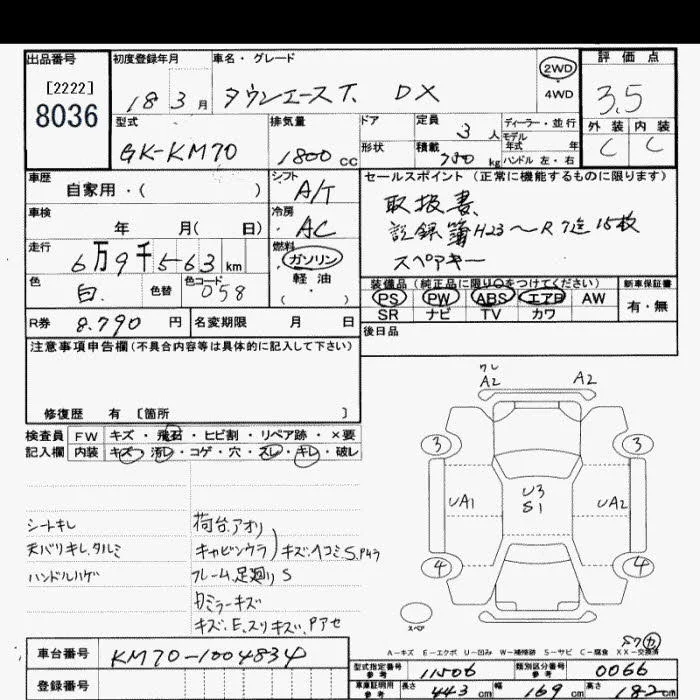 出品番号
[2222]
8036
初度登録年月
18年3月
車名・グレード
タウンエースT. DX
2WD
4WD
評価点
3.5
型式
GK-KM70
排気量
1800cc
ドア
形状
定員
3人
積載
kg
ディーラー・並行
モデル
年式 年
ハンドル 左・右
外装 内装
C C
車歴
自家用・( )
シフト
A/T
セールスポイント(正常に機能するものに限ります)
取扱書
記録簿H23〜R7迄15枚
スペアキー
車検
年 月( 日)
冷房
AC
走行
6万9千563km
燃料
ガソリン
軽油
( ・ )
色
白.
色替
色コード
058
装備品(純正品に限り○をつけてください)
PS PW ABS エアB AW
SR ナビ TV カワ
新車保証書
有・無
R券 8.790円
名変期限 月 日
後日品
注意事項申告欄(不具合内容等は具体的に記入して下さい)
修復歴 有 〔箇所 〕
検査員
記入欄
FW キズ・飛石・ヒビ割・リペア跡・×要
内装 キズ・汚レ・コゲ・穴・スレ・キレ・破レ
ワレ
A2 A2
3 3
UA1 U3 S1 UA2
4 4
スペア
シートキレ
天バリキレ,タルミ
ハンドルハゲ
荷台,アオリ
キャビンウラ)キズ・ヘコミS.P
フレーム,足廻りS
ミラーキズ
キズ・E.スリキズ.Pアセ
A−キズ E−エクボ U−凹み W−補修跡 S−サビ C−腐食 XX−交換済
車台番号 KM70-1004834
登録番号
型式指定番号
参考
11506
類別区分番号
参考
0066
車庫証明用
参考
長さ 443cm 幅 169cm 高さ 182cm